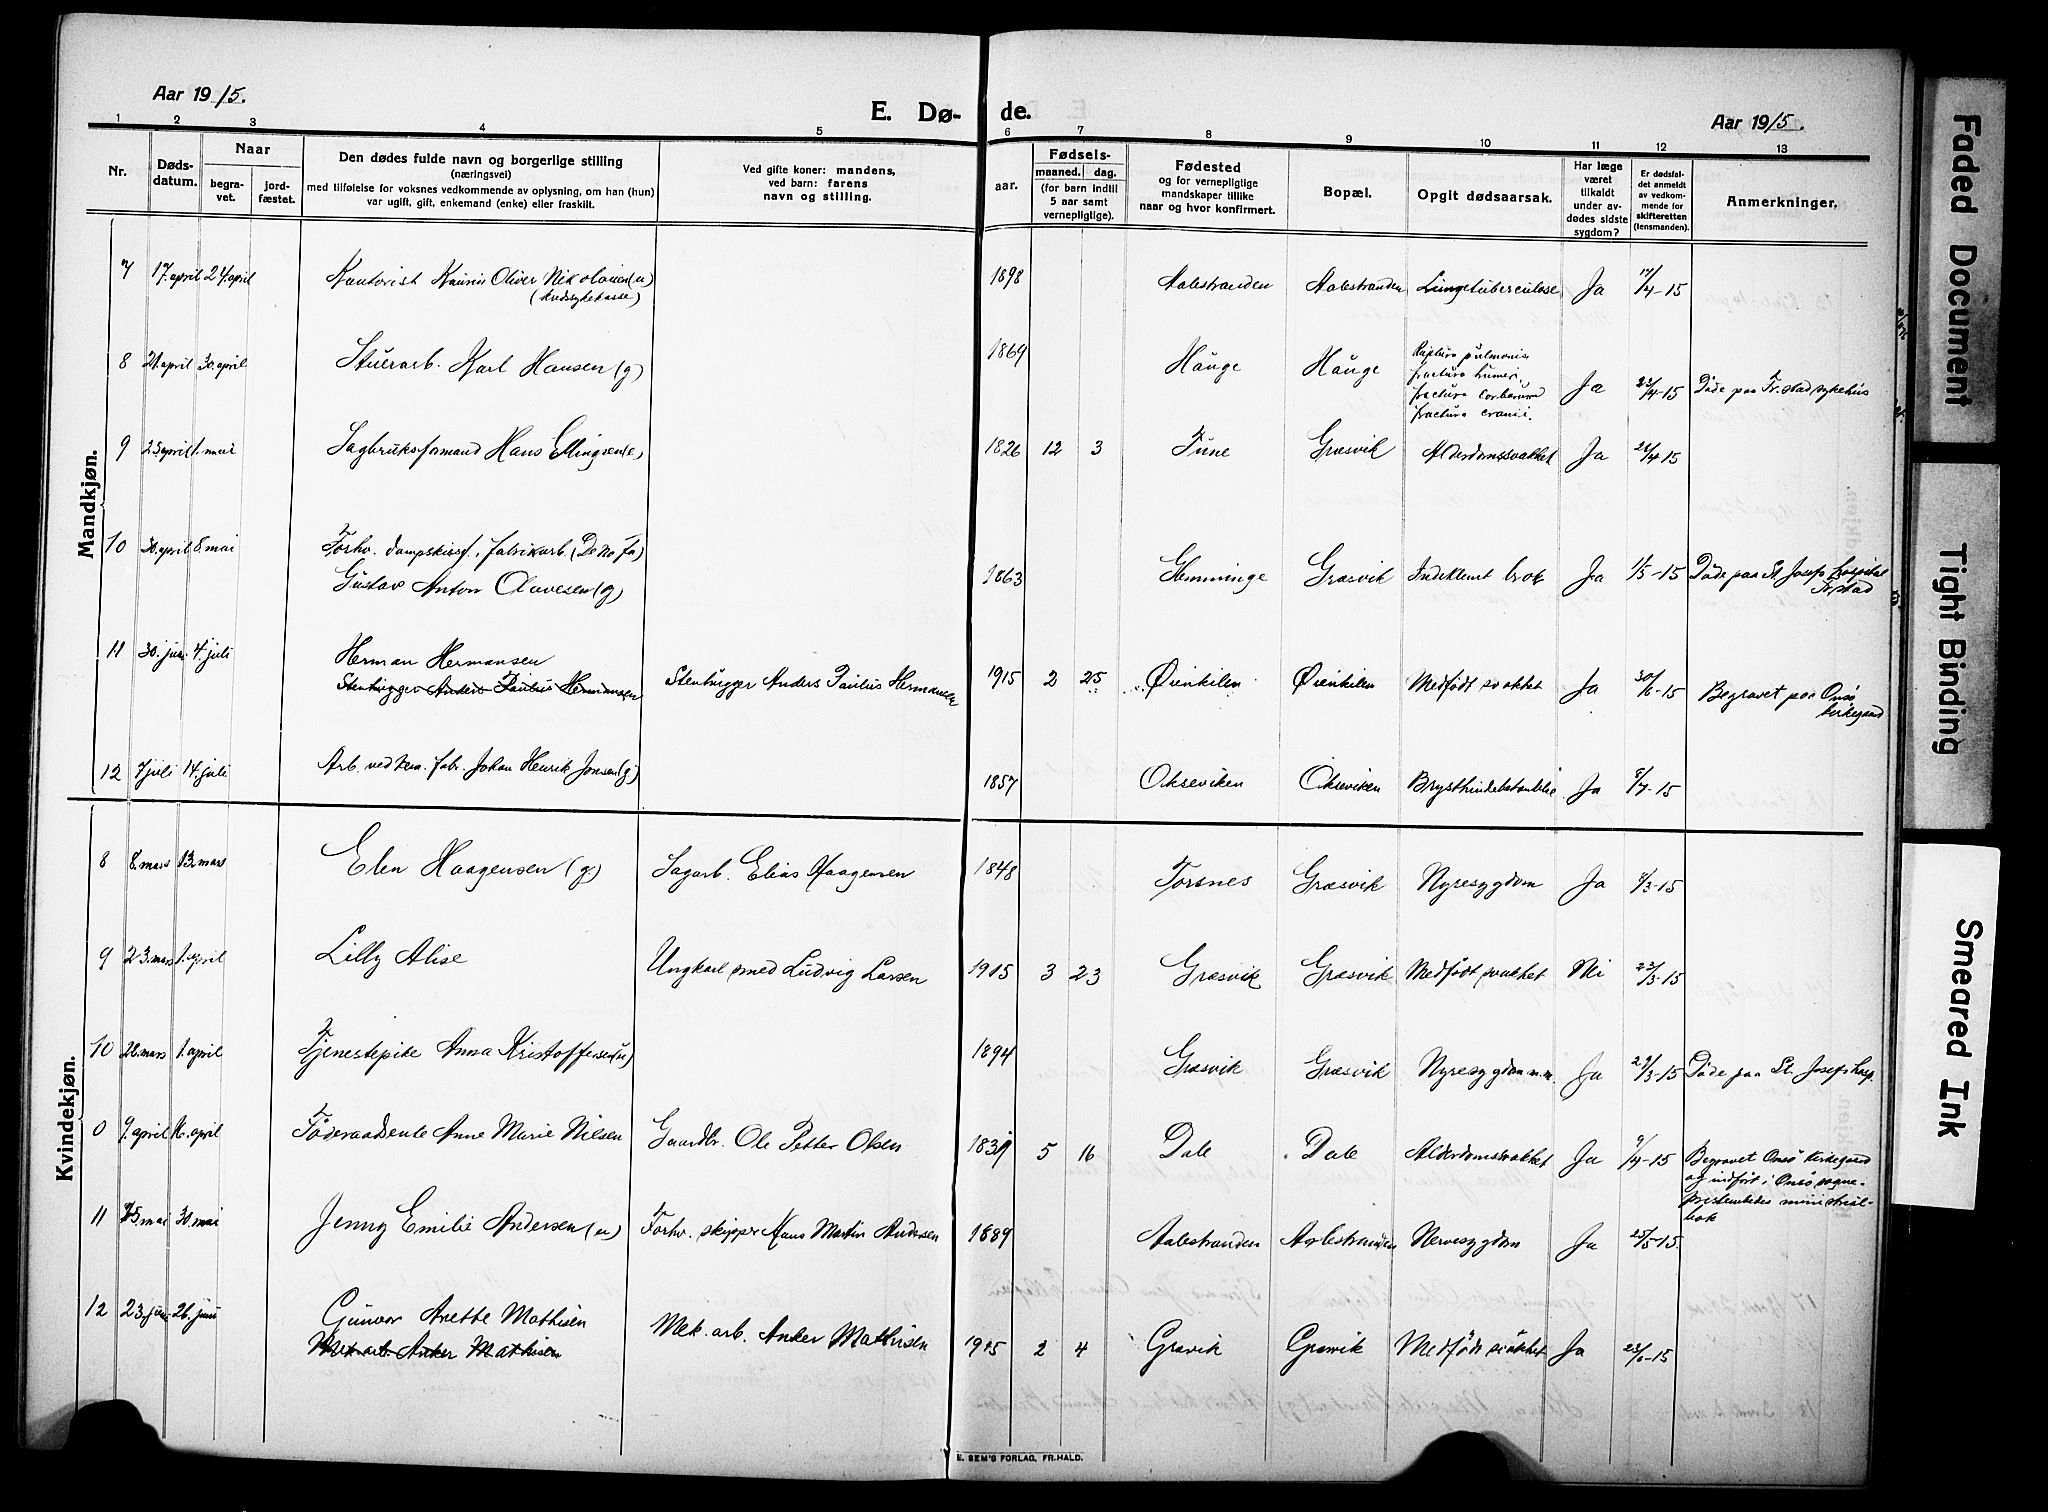 Aar 1915.
E. Dø-
de.
Aar 1915.
1 2 3 4 5 6 7 8 9 10 11 12 13
Nr.
Døds-
datum.
Naar
begra-
vet.
jord-
fæstet.
Den dødes fulde navn og borgerlige stilling
(næringsvei)
med tilføielse for voksnes vedkommende av oplysning, om han (hun)
var ugift, gift, enkemand (enke) eller fraskilt.
Ved gifte koner: mandens,
ved barn: farens
navn og stilling.
aar.
Fødsels-
maaned. dag.
(for barn indtil
5 aar samt
vernepligtige).
Fødested
og for vernepligtige
mandskaper tillike
naar og hvor konfirmert.
Bopæl.
Opgit dødsaarsak.
Har læge
været
tilkaldt
under av-
dødes sidste
sygdom?
Er dødsfal-
det anmeldt
av vedkom-
mende for
skifteretten
(lensmanden).
Anmerkninger.
Mandkjøn.
7 17. april 24. april Kontorist Oliver Nikolaisen (u) 1898 Aalestranden Aalestranden Lungetuberculose Ja 17/4-15
8 21. april 30. april Stuerarb. Karl Hansen (g) 1869 Hauge Hauge Ruptura pulmonis
fractura humeri,
fractura costarum
fractura cranii.
Ja 23/4-15 Døde paa Fr.stad sykehus
9 25. april 1. mai Sagbruksformand Hans Ellingsen (e) 1826 12 3 Tune Græsvik Alderdomssvakhet Ja 26/4-15
10 30. april 8. mai Forhv. dampskibsf., fabrikarb. (De No Fa)
Gustav Anton Olavesen (g) 1863 Hemminge Græsvik Indeklemt brok Ja 1/5-15 Døde paa St. Josefs hospital
Fr.stad
11 30. juni 4. juli Herman Hermansen
Stenhugger Anders Paulus Hermansen Stenhugger Anders Paulus Hermansen 1915 2 25 Øienkilen Øienkilen Medfødt svakhet Ja 30/6-15 Begravet paa Onsø
kirkegaard
12 7 juli 14. juli Arb. ved kem. fabr. Johan Henrik Jonsen (g) 1857 Okseviken Okseviken Brysthindebetændelse Ja 8/7-15
Kvindekjøn.
8 8. mars 13. mars Elen Haagensen (g) Sagarb. Elias Haagensen 1848 Torsnes Græsvik Nyresygdom Ja 8/3-15
9 23. mars 1. april Lilly Alise Ungkarl smed Ludvig Larsen 1915 3 23 Græsvik Græsvik Medfødt svakhet Nei 23/3-15
10 28. mars 1. april Tjenestepike Anna Kristoffersen (u) 1894 Græsvik Græsvik Nyresygdom m.m. Ja 29/3-15 Døde paa St. Josefs hosp.
0 9. april 16. april Føderaadsenke Anne Marie Nilsen Gaardbr. Ole Petter Olsen 1839 5 16 Dale Dale Alderdomssvakhet Ja 9/4-15 Begravet Onsø kirkegaard
og indført i Onsø sogne-
prestembedes ministerial-
bok
11 25. mai 30. mai Jenny Emilie Andersen (u) Forhv. skipper Hans Martin Andersen 1889 Aalestranden Aalestranden Nervesygdom Ja 25/5-15
12 23. juni 26. juni Gunvor Anette Mathisen
Mek. arb. Anker Mathisen Mek. arb. Anker Mathisen 1915 2 4 Græsvik Græsvik Medfødt svakhet Ja 23/6-15
E. SEM'S FORLAG, FR.HALD.
Faded Document
Tight Binding
Smeared Ink